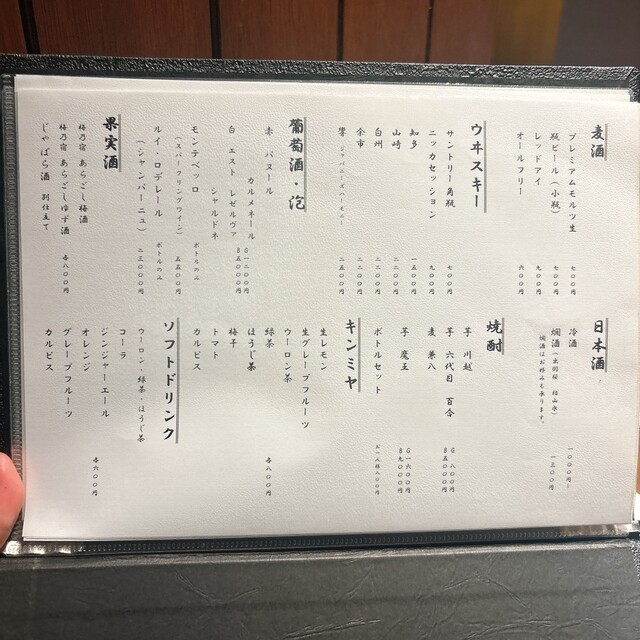 麦酒
プレミアムモルツ生 七〇〇円
瓶ビール（小瓶） 七〇〇円
レッドアイ 九〇〇円
オールフリー 六〇〇円
ウヰスキー
サントリー角瓶 七〇〇円
ニッカセッション 九〇〇円
知多 一五〇〇円
山崎 二二〇〇円
白州 二二〇〇円
余市 二二〇〇円
響 ジャパニーズハーモニー 二五〇〇円
葡萄酒・泡
赤 パヌール
カルメネール
白 エスト レゼルヴァ
シャルドネ
G 一二〇〇円
B 五〇〇〇円
モンテベッロ
（スパークリングワイン）
ボトルのみ 五五〇〇円
ルイ・ロデレール
（シャンパーニュ）
ボトルのみ 二三〇〇〇円
果実酒
梅乃宿 あらごし梅酒
梅乃宿 あらごしゆず酒
じゃばら酒 別仕立て
各八〇〇円
日本酒
冷酒 一〇〇〇円～
燗酒（出羽桜 枯山水） 一三〇〇円
燗酒はお好みも承ります。
焼酎
芋 川越
芋 六代目 百合
麦 兼八
G 八〇〇円
B 五〇〇〇円
芋 魔王
G 一六〇〇円
B 九〇〇〇円
ボトルセット お一人様八〇〇円
キンミヤ
生レモン
生グレープフルーツ
ウーロン茶
緑茶
ほうじ茶
梅干
トマト
カルピス
各八〇〇円
ソフトドリンク
ウーロン・緑茶・ほうじ茶
コーラ
ジンジャーエール
オレンジ
グレープフルーツ
カルピス
各六〇〇円